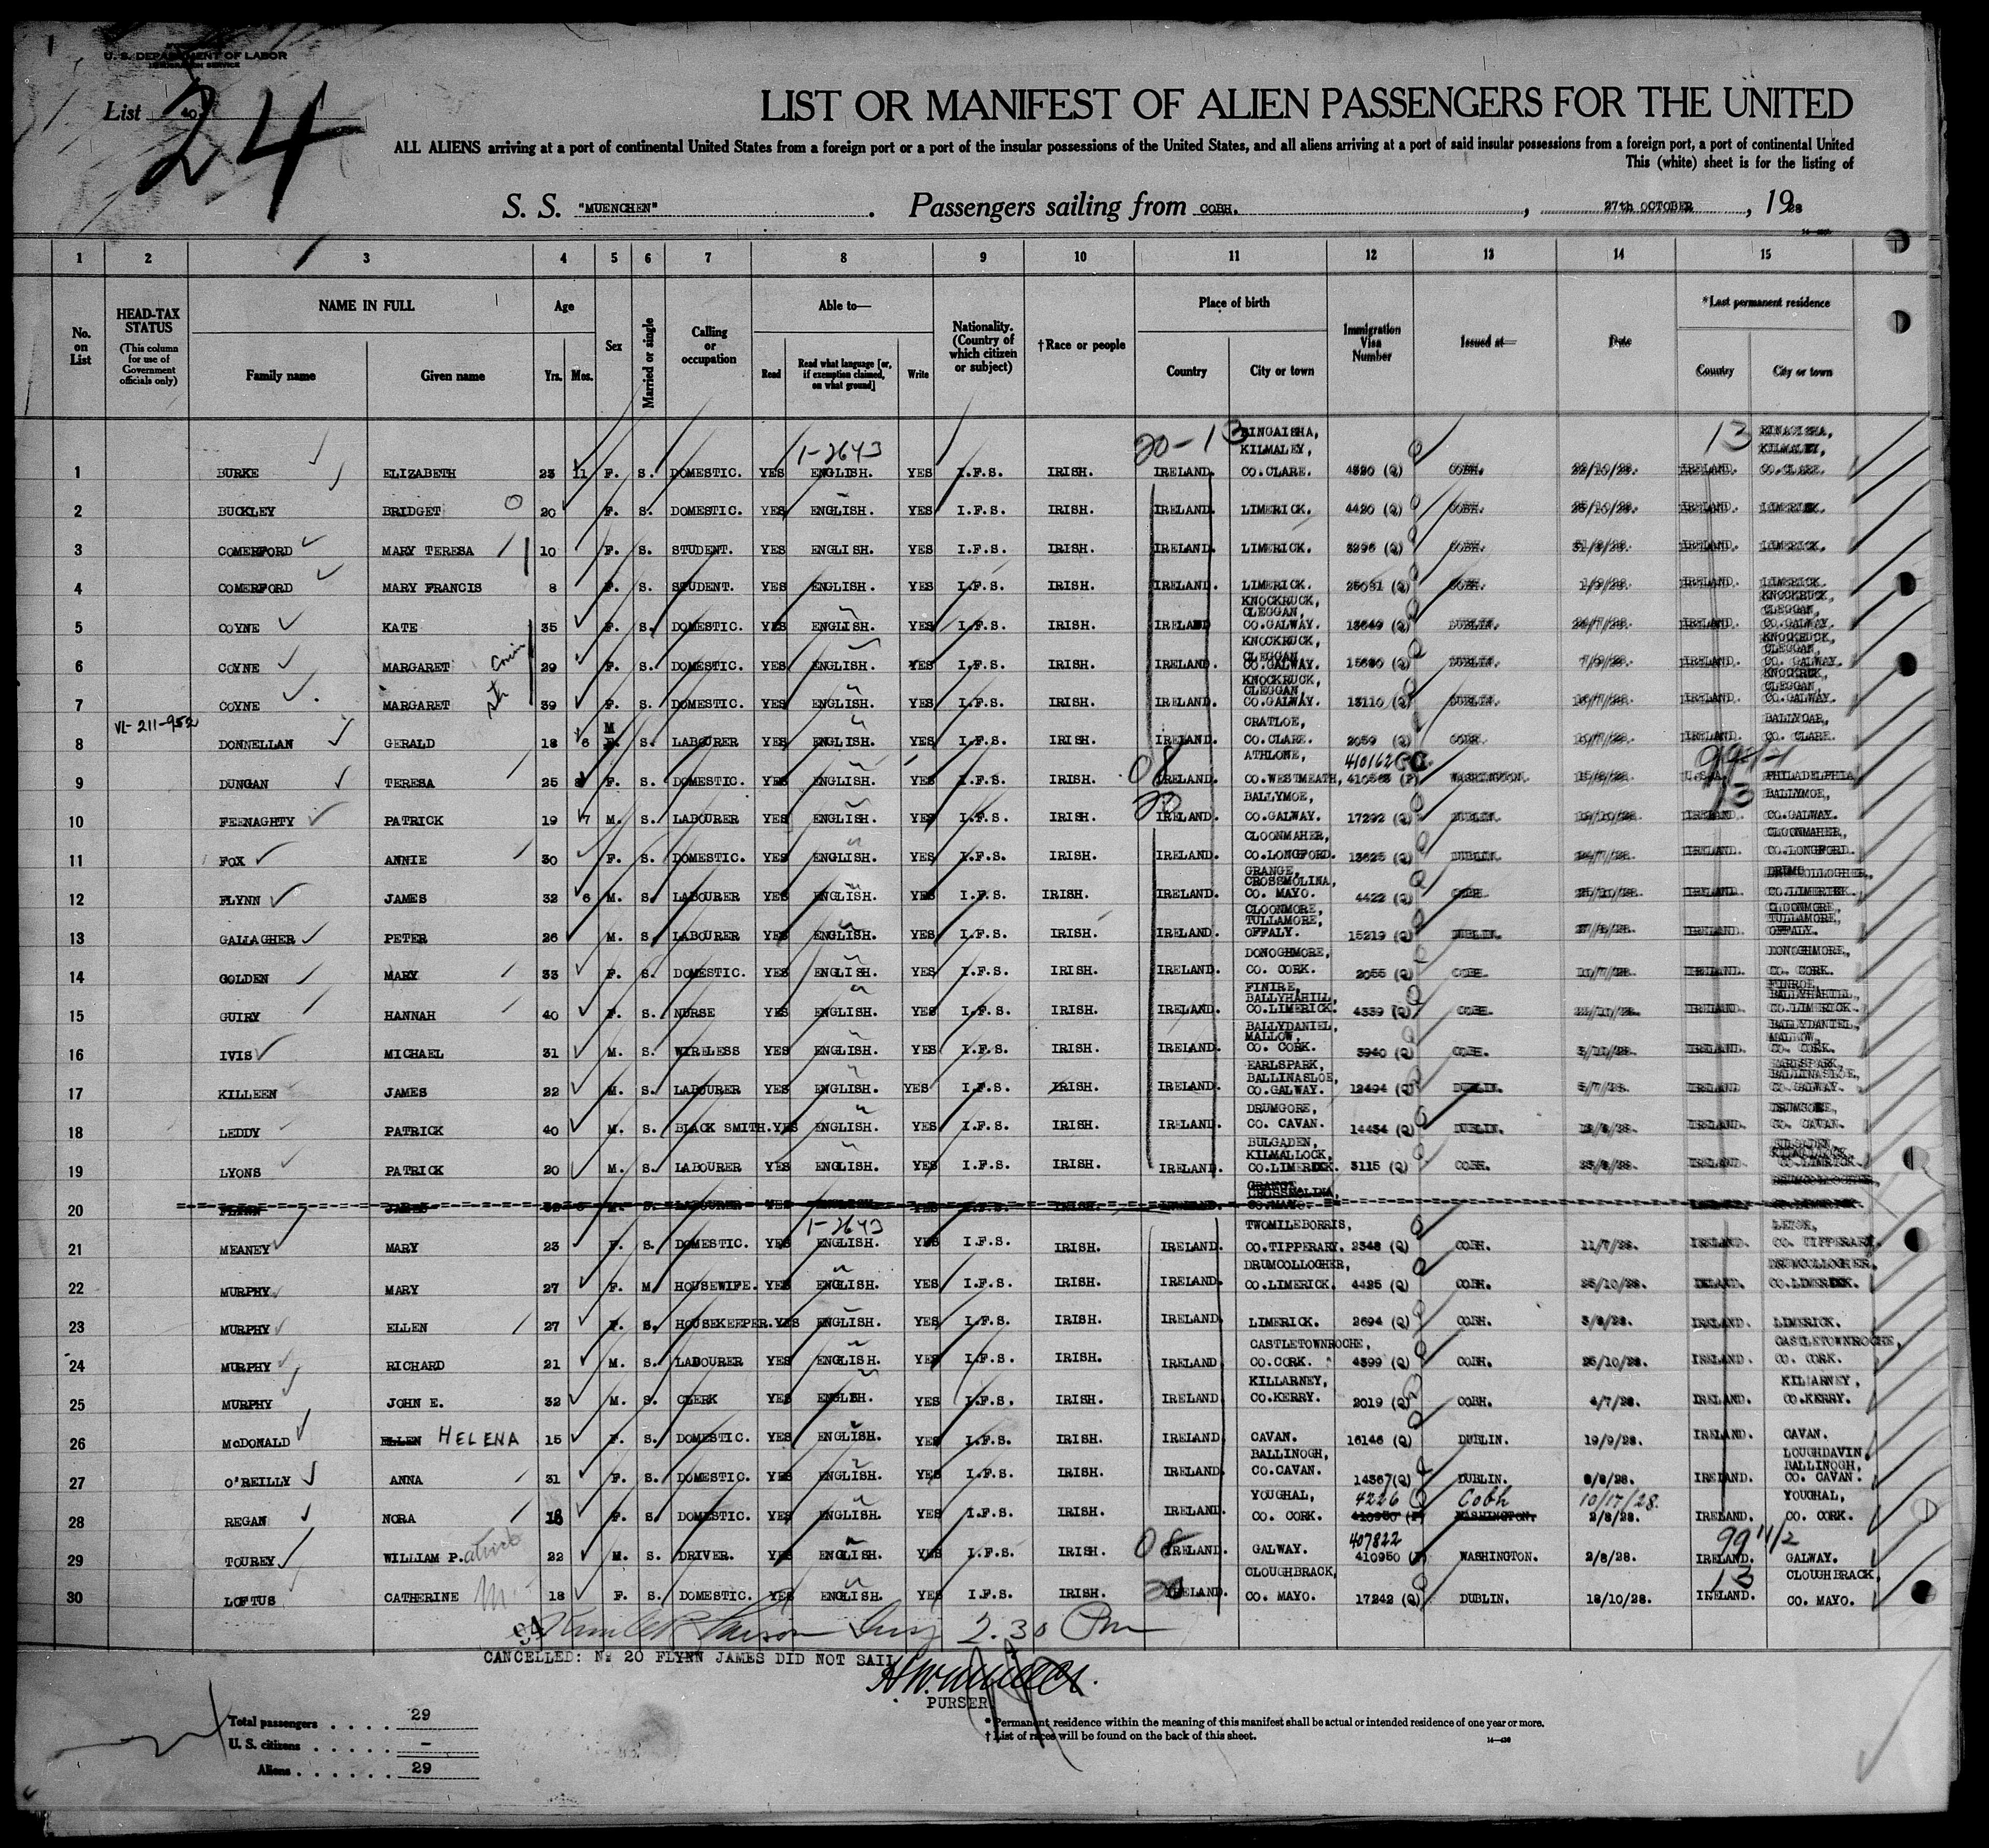 U. S. DEPARTMENT OF LABOR
IMMIGRATION SERVICE
List 40
24
LIST OR MANIFEST OF ALIEN PASSENGERS FOR THE UNITED
ALL ALIENS arriving at a port of continental United States from a foreign port or a port of the insular possessions of the United States, and all aliens arriving at a port of said insular possessions from a foreign port, a port of continental United
This (white) sheet is for the listing of
S. S. "MUENCHEN" . Passengers sailing from COBH. , 27th OCTOBER , 1928
1 2 3 4 5 6 7 8 9 10 11 12 13 14 15
No. on List
HEAD-TAX STATUS (This column for use of Government officials only)
NAME IN FULL Family name Given name
Age Yrs. Mos.
Sex
Married or single
Calling or occupation
Able to— Read Read what language [or, if exemption claimed, on what ground] Write
Nationality. (Country of which citizen or subject)
†Race or people
Place of birth Country City or town
Immigration Visa Number
Issued at—
Date
*Last permanent residence Country City or town
1 BURKE ELIZABETH 23 11 F. S. DOMESTIC. YES 1-2643 ENGLISH. YES I.F.S. IRISH. 20-13 IRELAND. KILMALEY, CO.CLARE. 4320 (Q) COBH. 22/10/28. 13 IRELAND. KILMALEY, CO.CLARE.
2 BUCKLEY BRIDGET 20 F. S. DOMESTIC. YES ENGLISH. YES I.F.S. IRISH. IRELAND. LIMERICK. 4420 (Q) COBH. 25/10/28. IRELAND. LIMERICK.
3 COMERFORD MARY TERESA 10 F. S. STUDENT. YES ENGLISH. YES I.F.S. IRISH. IRELAND. LIMERICK. 3296 (Q) COBH. 31/8/28. IRELAND. LIMERICK.
4 COMERFORD MARY FRANCIS 8 F. S. STUDENT. YES ENGLISH. YES I.F.S. IRISH. IRELAND. LIMERICK. 25031 (Q) COBH. 1/9/28. IRELAND. LIMERICK.
5 COYNE KATE 35 F. S. DOMESTIC. YES ENGLISH. YES I.F.S. IRISH. IRELAND KNOCKRUCK, CLEGGAN, CO.GALWAY. 13649 (Q) DUBLIN. 24/7/28. IRELAND. KNOCKRUCK, CLEGGAN, CO.GALWAY.
6 COYNE MARGARET 29 F. S. DOMESTIC. YES ENGLISH. YES I.F.S. IRISH. IRELAND. KNOCKRUCK, CLEGGAN, CO.GALWAY. 15680 (Q) DUBLIN. 7/9/28. IRELAND. KNOCKRUCK, CLEGGAN, CO. GALWAY.
7 COYNE MARGARET 39 F. S. DOMESTIC. YES ENGLISH. YES I.F.S. IRISH. IRELAND. KNOCKRUCK, CLEGGAN, CO.GALWAY. 13110 (Q) DUBLIN. 16/7/28. IRELAND. KNOCKRUCK, CLEGGAN, CO.GALWAY.
8 VL-211-952 DONNELLAN GERALD 18 6 M S. LABOURER YES ENGLISH. YES I.F.S. IRISH. IRELAND. CRATLOE, CO.CLARE. 2059 (Q) COBH. 10/7/28. IRELAND. BALLYCAR, CO. CLARE.
9 DUNGAN TERESA 25 F. S. DOMESTIC. YES ENGLISH. YES I.F.S. IRISH. 08 IRELAND. ATHLONE, CO.WESTMEATH, 410162 410563 (P) WASHINGTON. 15/8/28. U.S.A. PHILADELPHIA
10 FEENAGHTY PATRICK 19 7 M. S. LABOURER YES ENGLISH. YES I.F.S. IRISH. 20 IRELAND. BALLYMOE, CO.GALWAY. 17292 (Q) DUBLIN. 19/10/28. 13 IRELAND BALLYMOE, CO.GALWAY.
11 FOX ANNIE 30 F. S. DOMESTIC. YES ENGLISH. YES I.F.S. IRISH. IRELAND. CLOONMAHER, CO.LONGFORD. 13625 (Q) DUBLIN. 24/7/28. IRELAND. CLOONMAHER, CO.LONGFORD.
12 FLYNN JAMES 32 6 M. S. LABOURER YES ENGLISH. YES I.F.S. IRISH. IRELAND. GRANGE, CROSSMOLINA, CO. MAYO. 4422 (Q) COBH 25/10/28. IRELAND. DRUMCOLLOGHER, CO.LIMERICK.
13 GALLAGHER PETER 26 M. S. LABOURER YES ENGLISH. YES I.F.S. IRISH. IRELAND. CLOONMORE, TULLAMORE, OFFALY. 15219 (Q) DUBLIN. 27/8/28. IRELAND. CLOONMORE, TULLAMORE, OFFALY.
14 GOLDEN MARY 33 F. S. DOMESTIC. YES ENGLISH. YES I.F.S. IRISH. IRELAND. DONOGHMORE, CO. CORK. 2055 (Q) COBH. 10/7/28. IRELAND. DONOGHMORE, CO. CORK.
15 GUIRY HANNAH 40 F. S. NURSE YES ENGLISH. YES I.F.S. IRISH. IRELAND. FINIRE, BALLYHAHILL, CO.LIMERICK. 4339 (Q) COBH. IRELAND. FINROE, BALLYHAHILL, CO.LIMERICK.
16 IVIS MICHAEL 31 M. S. WIRELESS YES ENGLISH. YES I.F.S. IRISH. IRELAND. BALLYDANIEL, MALLOW, CO. CORK. 3940 (Q) COBH. 5/10/28. IRELAND. BALLYDANIEL, MALLOW, CO. CORK.
17 KILLEEN JAMES 22 M. S. LABOURER YES ENGLISH. YES I.F.S. IRISH. IRELAND. EARLSPARK, BALLINASLOE, CO.GALWAY. 12494 (Q) DUBLIN. 5/7/28. IRELAND EARLSPARK, BALLINASLOE, CO.GALWAY.
18 LEDDY PATRICK 40 M. S. BLACK SMITH. YES ENGLISH. YES I.F.S. IRISH. IRELAND. DRUMGORE, CO. CAVAN. 14434 (Q) DUBLIN. IRELAND. DRUMGORE, CO. CAVAN.
19 LYONS PATRICK 20 M. S. LABOURER YES ENGLISH. YES I.F.S. IRISH. IRELAND. BULGADEN, KILMALLOCK, CO.LIMERICK. 3115 (Q) COBH. 23/8/28. IRELAND. BULGADEN, KILMALLOCK, CO.LIMERICK.
20 FLYNN JAMES M. S. LABOURER YES ENGLISH YES I.F.S. IRISH. IRELAND. GRANGE CROSSMOLINA, CO.MAYO.
21 MEANEY MARY 23 F. S. DOMESTIC. YES 1-2643 ENGLISH. YES I.F.S. IRISH. IRELAND. TWOMILEBORRIS, CO.TIPPERARY. 2348 (Q) COBH. 11/7/28. IRELAND. CO. TIPPERARY.
22 MURPHY MARY 27 F. M. HOUSEWIFE. YES ENGLISH. YES I.F.S. IRISH. IRELAND. DRUMCOLLOGHER, CO.LIMERICK. 4425 (Q) COBH. 25/10/28. IRELAND. DRUMCOLLOGHER, CO.LIMERICK.
23 MURPHY ELLEN 27 F. S. HOUSEKEEPER. YES ENGLISH. YES I.F.S. IRISH. IRELAND. LIMERICK. 2694 (Q) COBH. 3/8/28. IRELAND. LIMERICK.
24 MURPHY RICHARD 21 M. S. LABOURER YES ENGLISH. YES I.F.S. IRISH. IRELAND CASTLETOWNROCHE, CO.CORK. 4399 (Q) COBH. 25/10/28. IRELAND. CASTLETOWNROCHE, CO. CORK.
25 MURPHY JOHN E. 32 M. S. CLERK YES ENGLISH. YES I.F.S. IRISH. IRELAND KILLARNEY, CO.KERRY. 2019 (Q) COBH. 4/7/28. IRELAND. KILLARNEY, CO.KERRY.
26 McDONALD ELLEN HELENA 15 F. S. DOMESTIC. YES ENGLISH. YES I.F.S. IRISH. IRELAND CAVAN. 16146 (Q) DUBLIN. 19/9/28. IRELAND. CAVAN.
27 O'REILLY ANNA 31 F. S. DOMESTIC. YES ENGLISH. YES I.F.S. IRISH. IRELAND BALLINOGH, CO.CAVAN. 14367(Q) DUBLIN. 8/8/28. IRELAND. LOUGHDAVIN, BALLINOGH, CO. CAVAN.
28 REGAN NORA F. S. DOMESTIC. YES ENGLISH. YES I.F.S. IRISH. IRELAND. YOUGHAL, CO. CORK. 4226 410950 (P) Cobh WASHINGTON. 10/17/28. 2/8/28. IRELAND. YOUGHAL, CO. CORK.
29 TOUREY WILLIAM P.atrick 22 M. S. DRIVER. YES ENGLISH. YES I.F.S. IRISH. 08 IRELAND. GALWAY. 407822 410950 (P) WASHINGTON. 2/8/28. 99 11/2 IRELAND. GALWAY.
30 LOFTUS CATHERINE M. 18 F. S. DOMESTIC. YES ENGLISH. YES I.F.S. IRISH. 20 IRELAND. CLOUGHBRACK, CO. MAYO. 17242 (Q) DUBLIN. 18/10/28. 13 IRELAND. CLOUGHBRACK, CO. MAYO.
2.30 Pm
CANCELLED: No 20 FLYNN JAMES DID NOT SAIL
PURSER
Total passengers . . . . 29
U. S. citizens . . . . . –
Aliens . . . . . . 29
* Permanent residence within the meaning of this manifest shall be actual or intended residence of one year or more.
† List of races will be found on the back of this sheet.